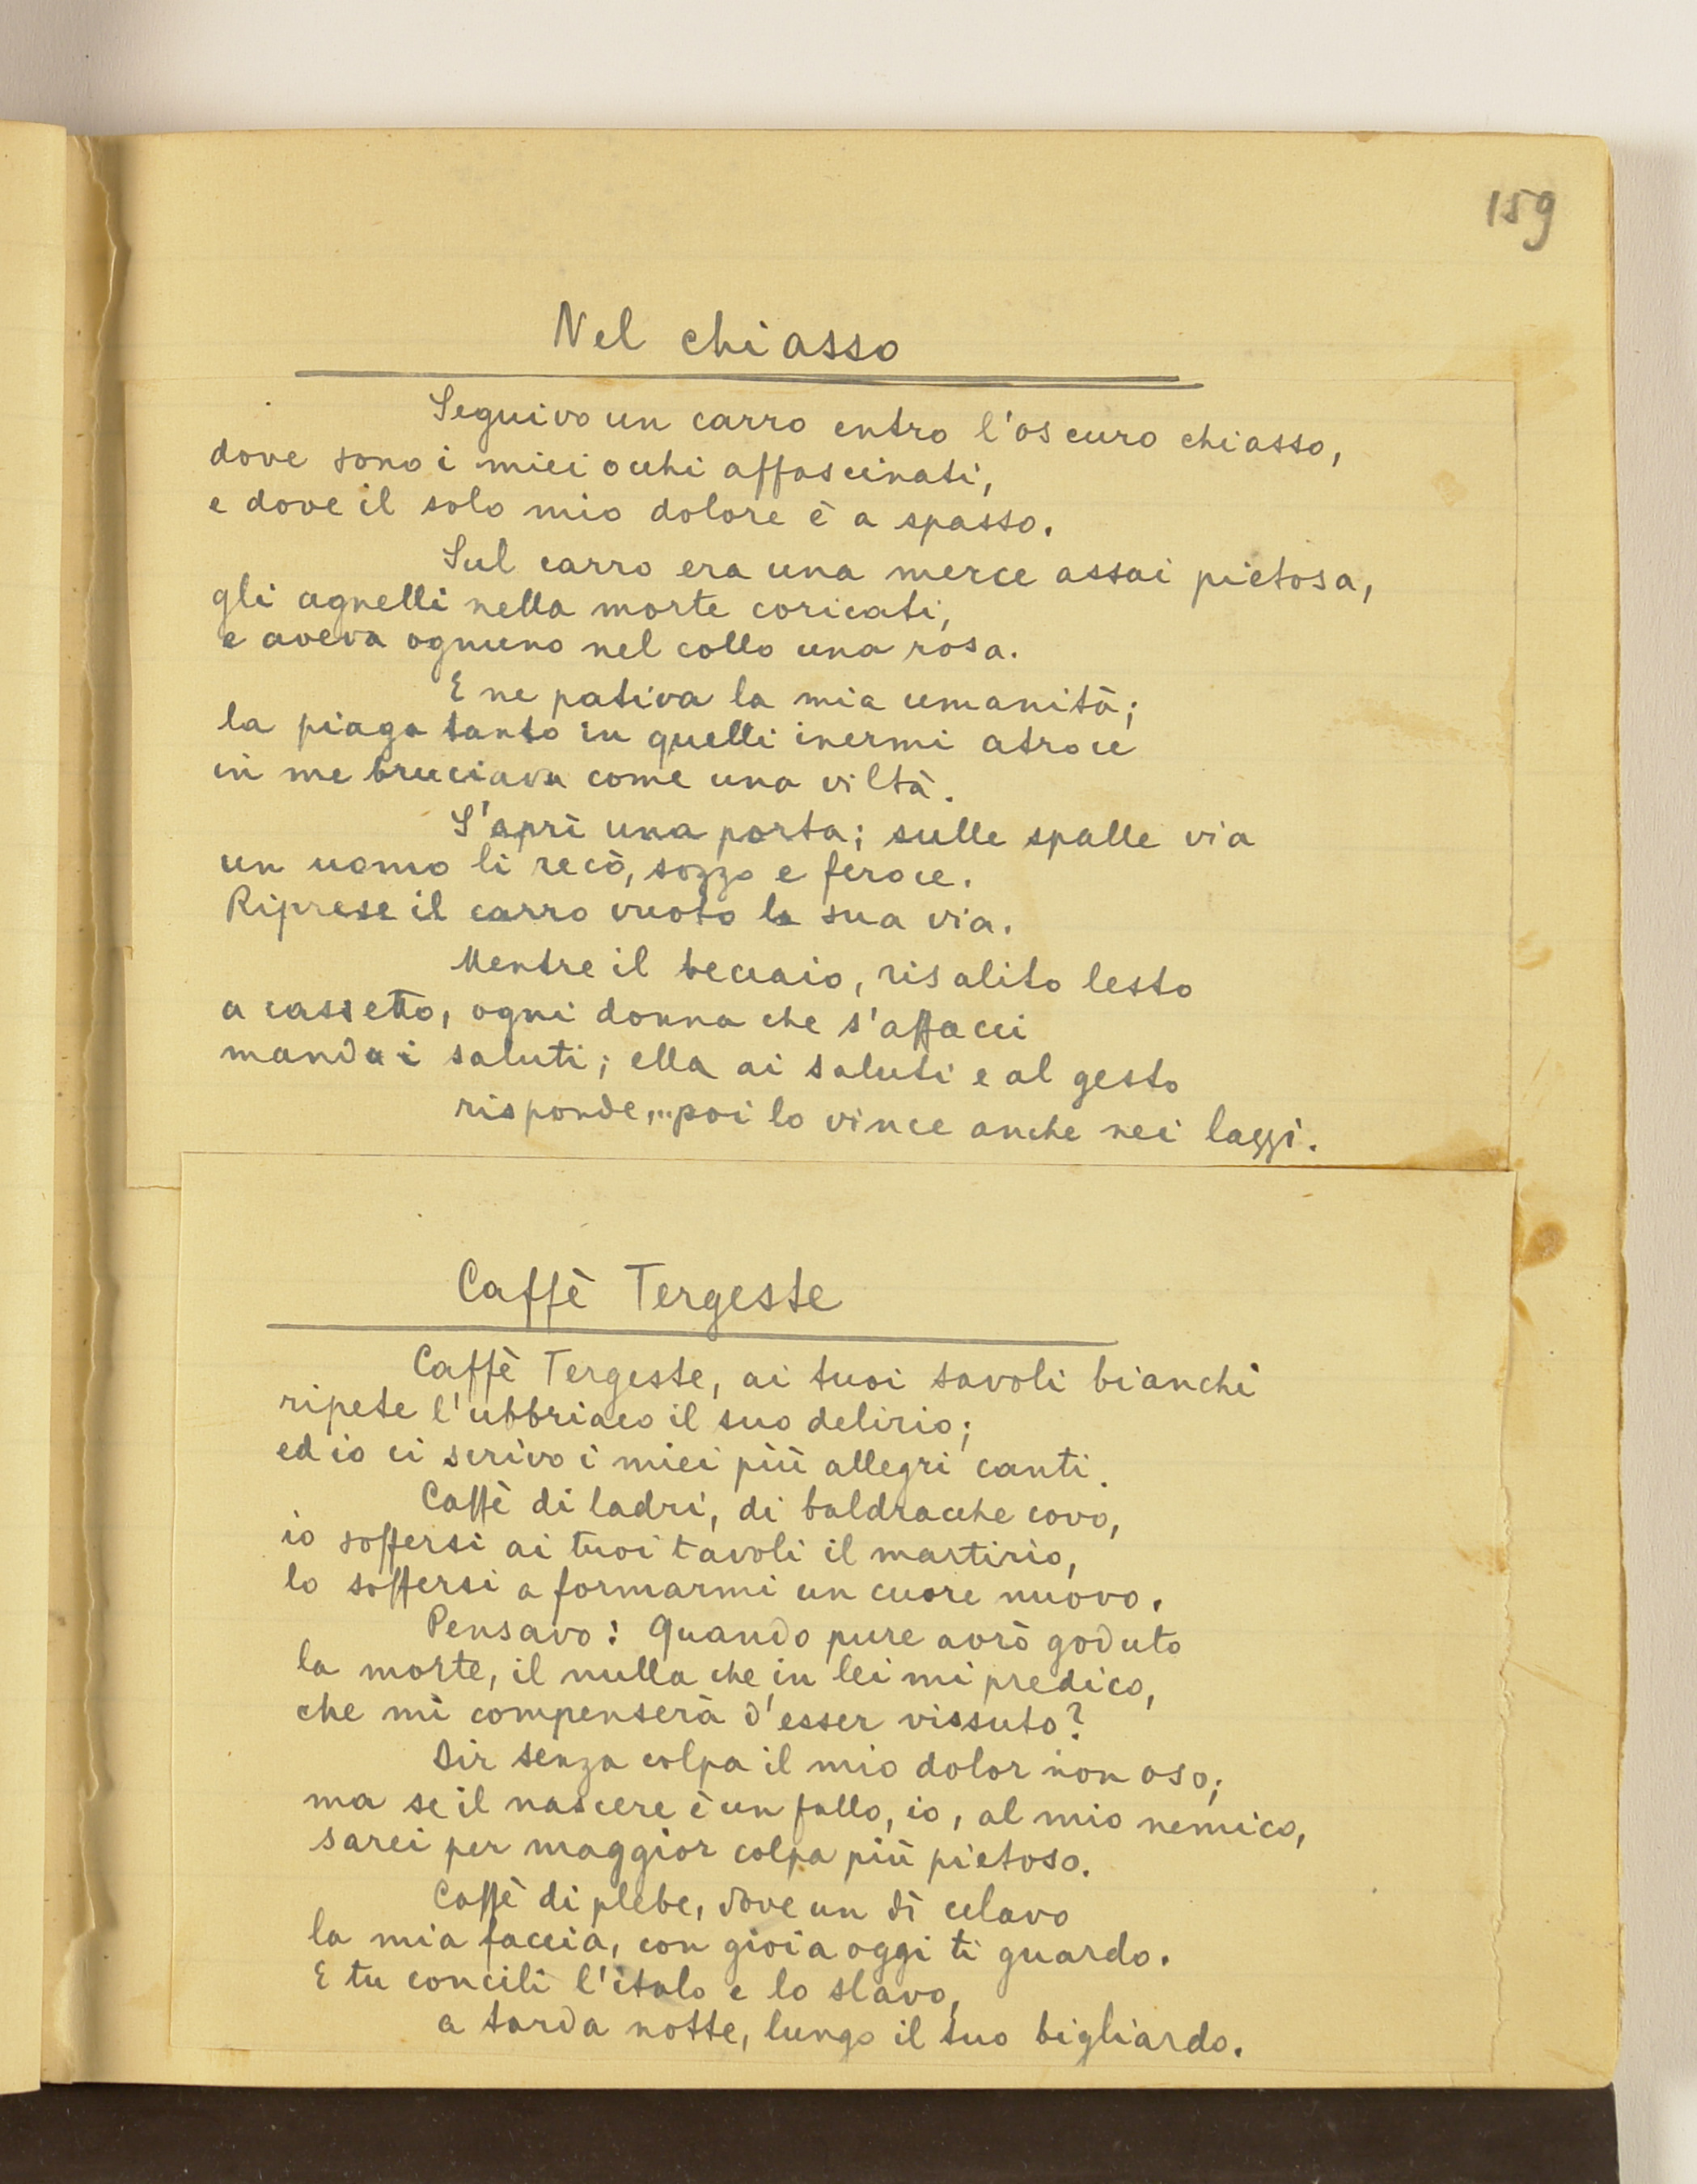 159
Nel chiasso
Seguivo un carro entro l'oscuro chiasso,
dove sono i miei occhi affascinati,
e dove il solo mio dolore è a spasso.
Sul carro era una merce assai pietosa,
gli agnelli nella morte coricati,
e aveva ognuno nel collo una rosa.
E ne pativa la mia umanità;
la piaga tanto in quelli inermi atroce
in me bruciava come una viltà.
S'aprì una porta; sulle spalle via
un uomo li recò, sozzo e feroce.
Riprese il carro vuoto la sua via.
Mentre il beccaio, risalito lesto
a cassetto, ogni donna che s'affacci
manda i saluti; ella ai saluti e al gesto
risponde,...poi lo vince anche nei lazzi.
Caffè Tergeste
Caffè Tergeste, ai tuoi tavoli bianchi
ripete l'ubbriaco il suo delirio;
ed io ci scrivo i miei più allegri canti.
Caffè di ladri, di baldracche covo,
io soffersi ai tuoi tavoli il martirio,
lo soffersi a formarmi un cuore nuovo.
Pensavo: Quando pure avrò goduto
la morte, il nulla che in lei mi predico,
che mi compenserà d'esser vissuto?
Dir senza colpa il mio dolor non oso;
ma se il nascere è un fallo, io, al mio nemico,
sarei per maggior colpa più pietoso.
Caffè di plebe, dove un dì celavo
la mia faccia, con gioia oggi ti guardo.
E tu concili l'italo e lo slavo,
a tarda notte, lungo il tuo bigliardo.